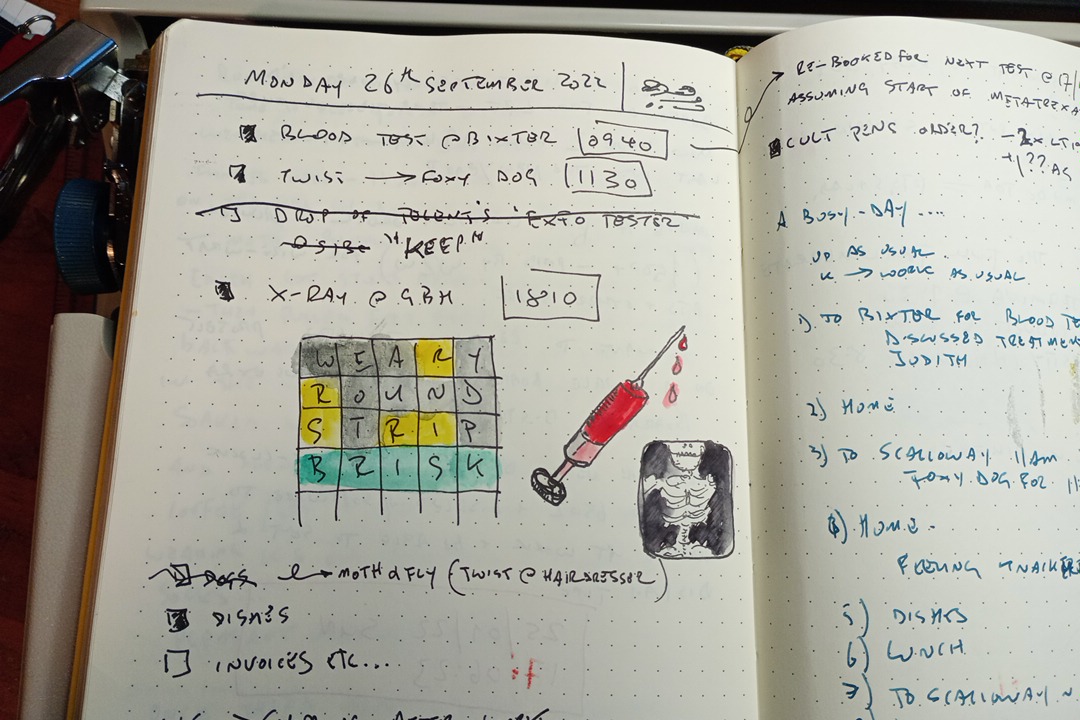 MONDAY 26th SEPTEMBER 2022
BLOOD TEST @ BIXTER 0940
TWIST → FOXY DOG 1130
DROP OF EXFO TESTER
"KEEP"
X-RAY @ GBH 1810
W E A R Y
R O U N D
S T R I P
B R I S K
DOGS → MOTH & FLY (TWIST @ HAIRDRESSER)
DISHES
INVOICES ETC...
AFTER WORK
RE-BOOKED FOR NEXT TEST @ 17/
ASSUMING START OF
CULT PENS ORDER?
A BUSY-DAY ....
UP AS USUAL
K → WORK AS USUAL
1) TO BIXTER FOR BLOOD TE
DISCUSSED TREATMEN
JUDITH
2) HOME.
3) TO SCALLOWAY 11AM
FOXY DOG FOR 11
4) HOME.
FEELING
5) DISHES
6) LUNCH
7) TO SCALLOWAY